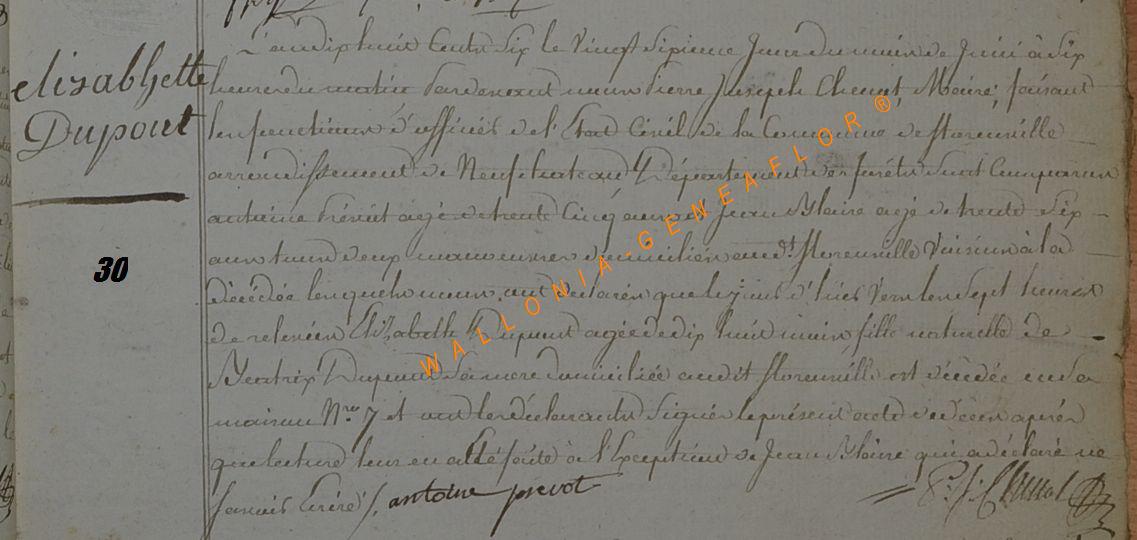 elizabhette
Dupont
30
L'an dix huit Cents Six le Vingt Sixieme Jour du mois de Juin à Six
heures du matin Pardevant nous Pierre Joseph Clement, Maire, faisant
les fonctions d'officier de l'Etat Civil de la Commune de
arrondissement de Neufchateau Département des forêts Sont Comparus
antoine Prévot agé de trente Cinq ans et Jean agé de trente Six
ans tous deux manouvriers domiciliés au dt. Voisins à la
décédée lesquels nous ont declarés que le jour d'hier vers les Sept heures
de relevée Elizabeth Dupont agée de dix huit mois, fille naturelle de
Beatrix Dupont Sa mere domiciliée audit est décédée en Sa
maison Nro. 7 et ont les déclarants Signés le présent acte de décès après
que lecture leur en a été faite à l'Exception de Jean qui a déclaré ne
Savoir Ecrire /. antoine prevot
WALLONIA-GENEAFLOR®